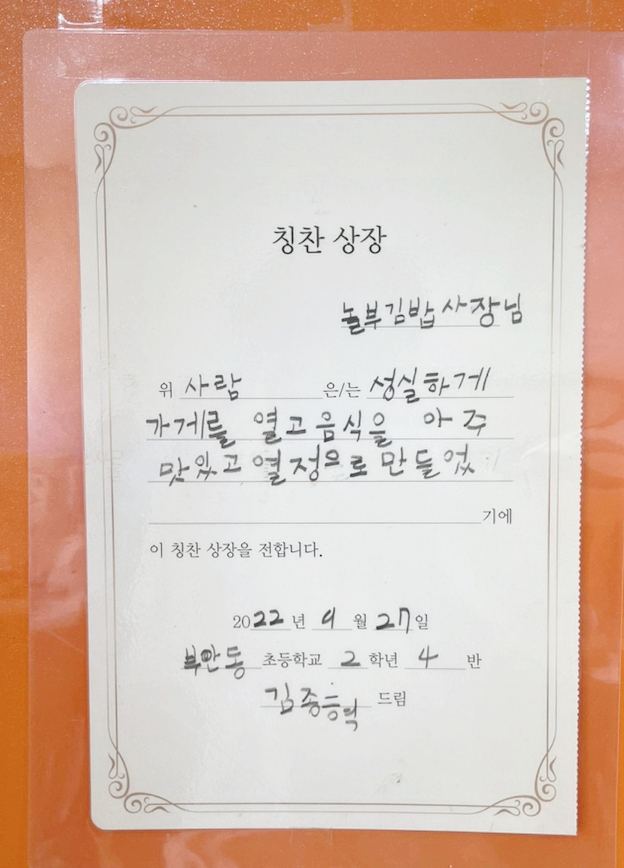 칭찬 상장
놀부김밥사장님
위 사람 은/는 성실하게
가게를 열고 음식을 아주
맛있고 열정으로 만들었
기에
이 칭찬 상장을 전합니다.
2022년 9월 27일
부안동 초등학교 2학년 4반
드림